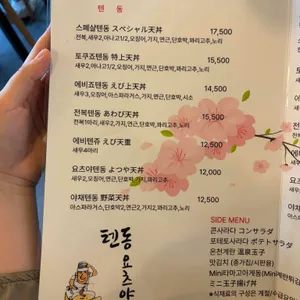 텐동
스페셜텐동 スペシャル天丼 17,500
전복,새우2,아나고1/2,오징어,가지,연근,단호박,꽈리고추,노리
토쿠죠텐동 特上天丼 15,500
새우2,아나고1/2,오징어,가지,연근,단호박,꽈리고추,노리
에비죠텐동 えび上天丼 14,500
새우3,오징어,아스파라거스,가지,연근,단호박,시소
전복텐동 あわび天丼 15,500
전복1마리,새우2,가지,연근,단호박,꽈리고추,노리
에비텐쥬 えび天重 12,500
새우4마리
요츠야텐동 よつや天丼 12,000
새우2,오징어,연근,가지,단호박,꽈리고추,노리
야채텐동 野菜天丼 12,500
아스파라거스,단호박2,연근2,가지2,꽈리고추,노리
텐동
요츠야
SIDE MENU
콘사라다 コンサラダ
포테토사라다 ポテトサラダ
온천계란 温泉玉子
맛김치 (종가집/시판용)
Mini타마고아게동(Mini계란튀김
ミニ玉子揚げ丼
*식재료의 구성은 계절/수급